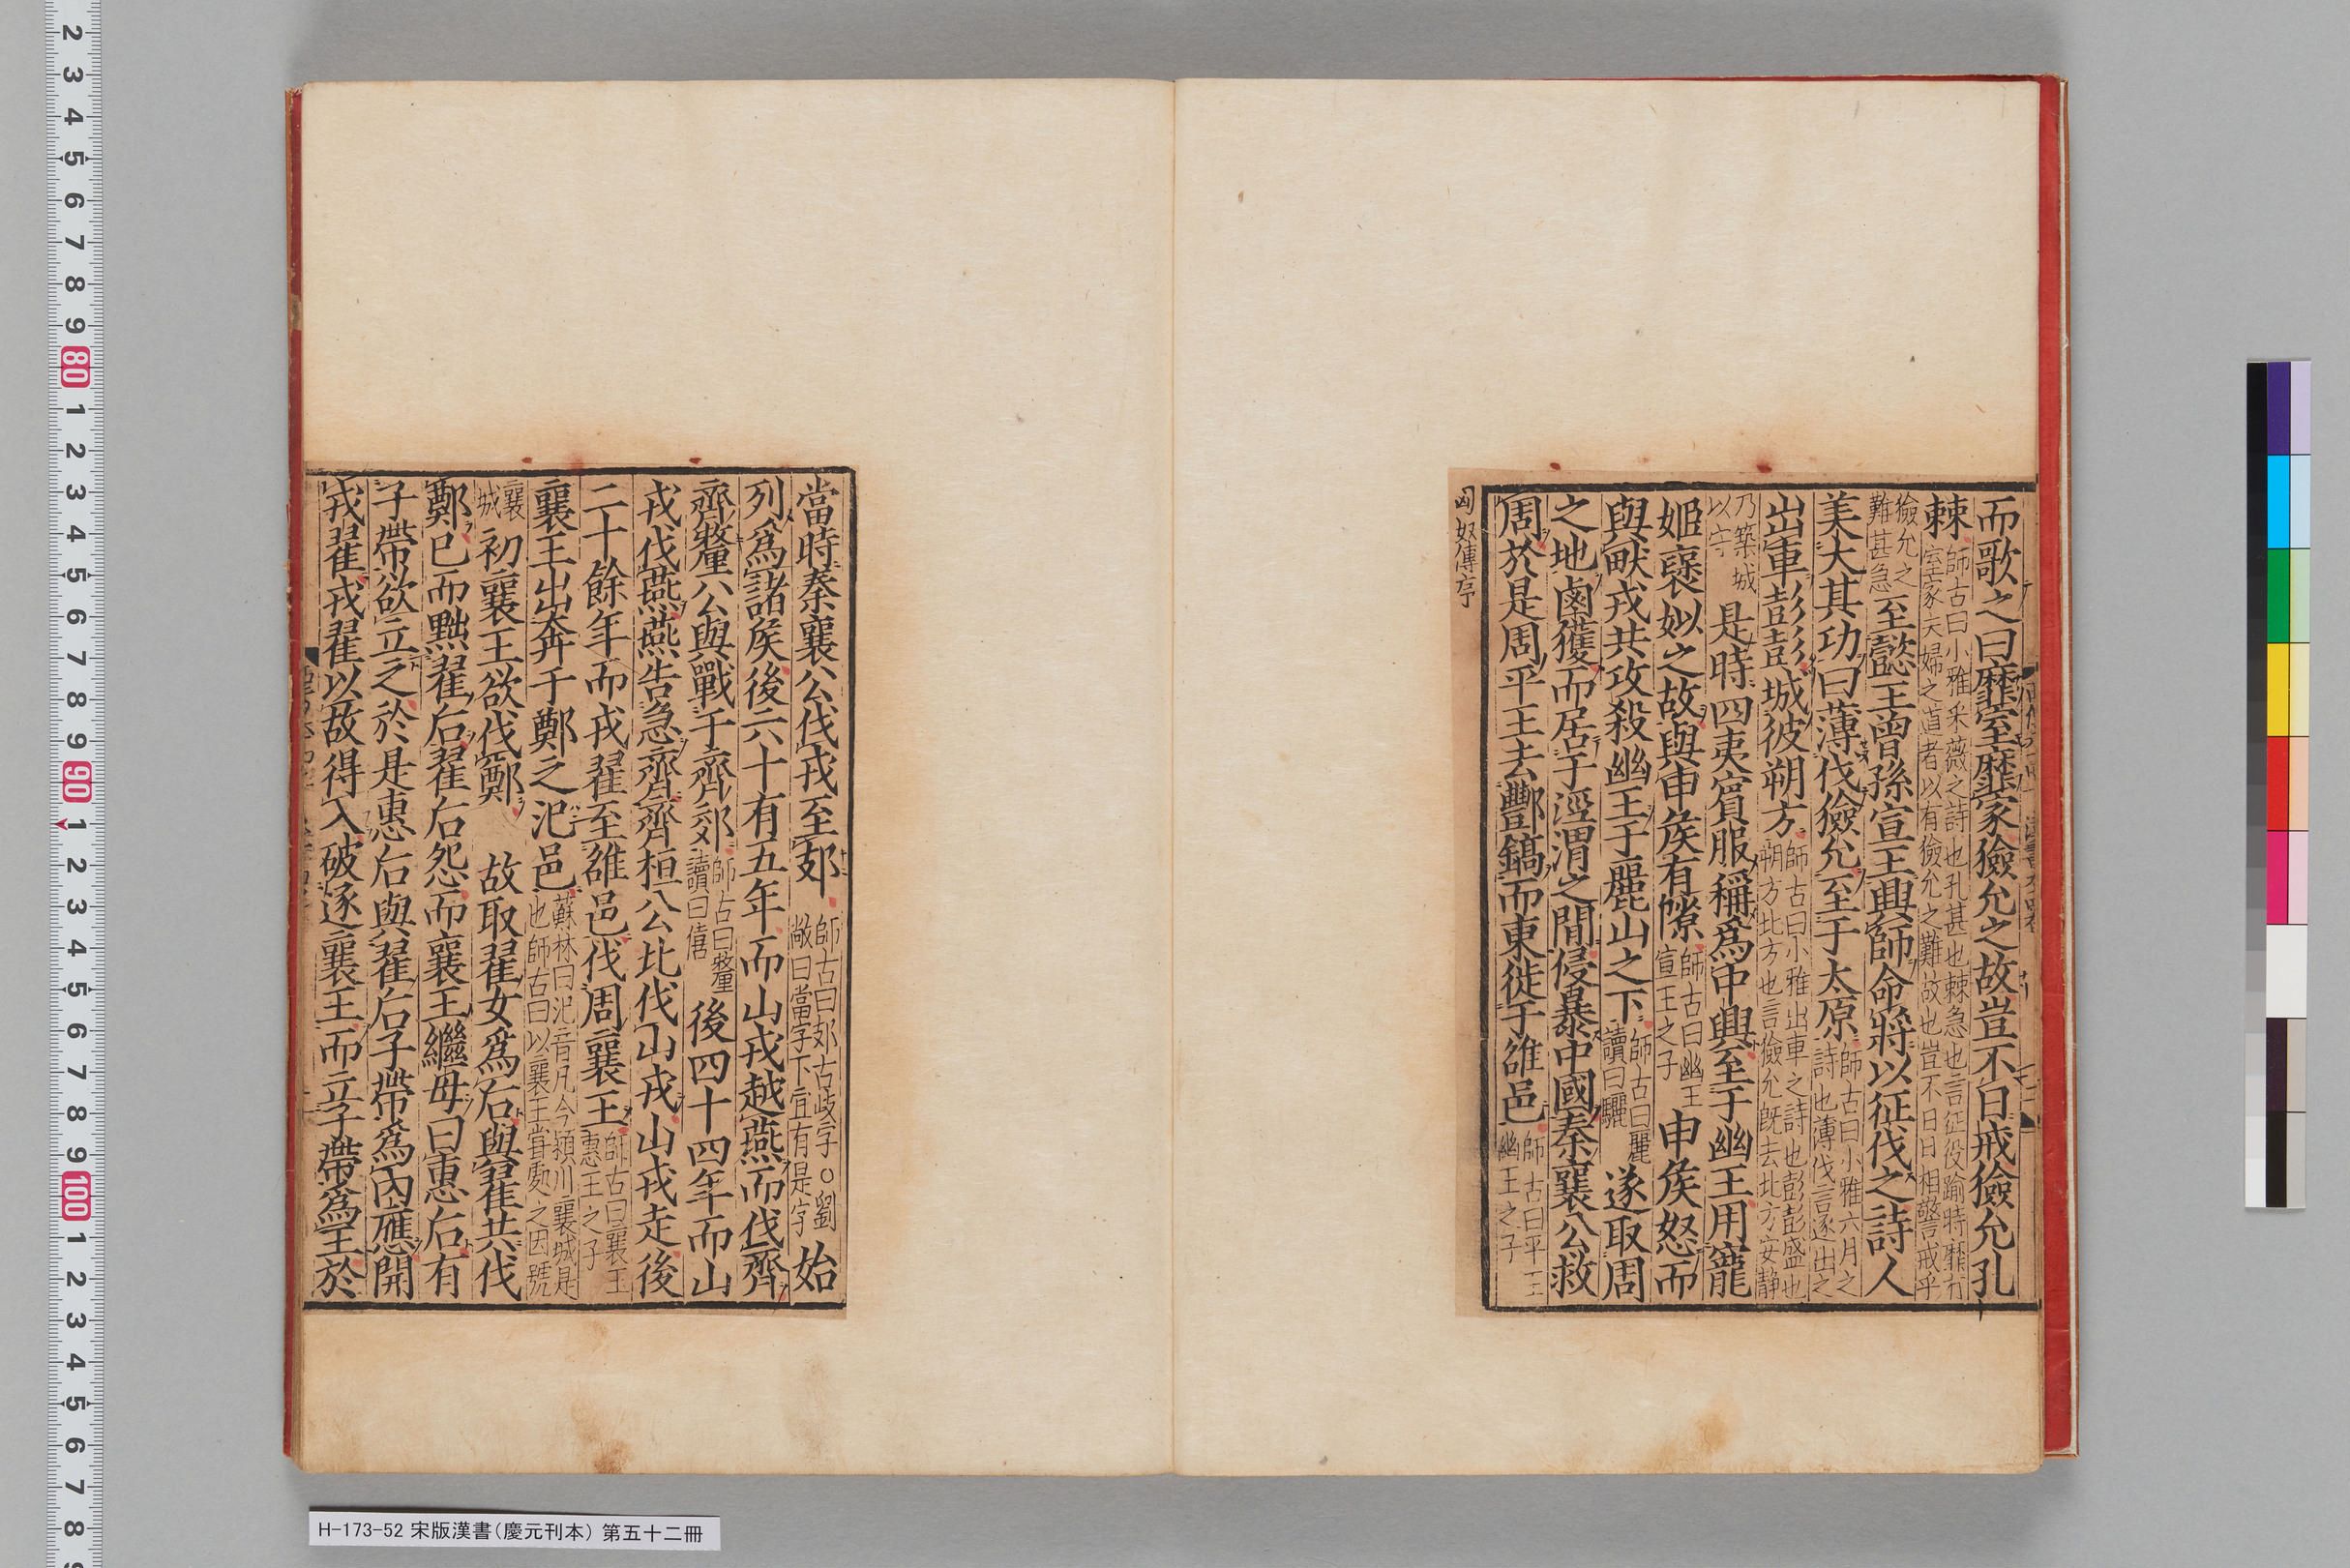 而歌之曰靡室靡家獫允之故豈不日戒獫允孔
棘師古曰小雅采薇之詩也孔甚也棘急也言征役踰時靡有室家夫婦之道者以有獫允之難故也豈不日日相警戒乎
獫允之難甚急至懿王曾孫宣王興師命將以征伐之詩人
美大其功曰薄伐獫允至于太原師古曰小雅六月之詩也薄伐言逐出之
出車彭彭城彼朔方師古曰小雅出車之詩也彭彭盛也朔方北方也言獫允既去北方安靜
乃築城以守是時四夷賓服稱爲中興至于幽王用寵
姬襃姒之故與申侯有隙師古曰幽王宣王之子申侯怒而
與畎戎共攻殺幽王于麗山之下師古曰麗讀曰驪遂取周
之地鹵獲而居于涇渭之間侵暴中國秦襄公救
周於是周平王去酆鎬而東徙于雒邑師古曰平王幽王之子
匈奴傳序
當時秦襄公伐戎至郊師古曰郊古歧字○劉敞曰當字下宜有是字始
列爲諸侯後六十有五年而山戎越燕而伐齊
齊釐公與戰于齊郊師古曰釐讀曰僖後四十四年而山
戎伐燕燕告急齊齊桓公北伐山戎山戎走後
二十餘年而戎翟至雒邑伐周襄王師古曰襄王惠王之子
襄王出奔于鄭之氾邑蘇林曰氾音凡今潁川襄城是也師古曰以襄王嘗處之因號
襄城初襄王欲伐鄭故取翟女爲后與翟共伐
鄭已而黜翟后翟后怨而襄王繼母曰惠后有
子帶欲立之於是惠后與翟后子帶爲內應開
戎翟戎翟以故得入破逐襄王而立子帶爲王於
H-173-52 宋版漢書（慶元刊本） 第五十二冊